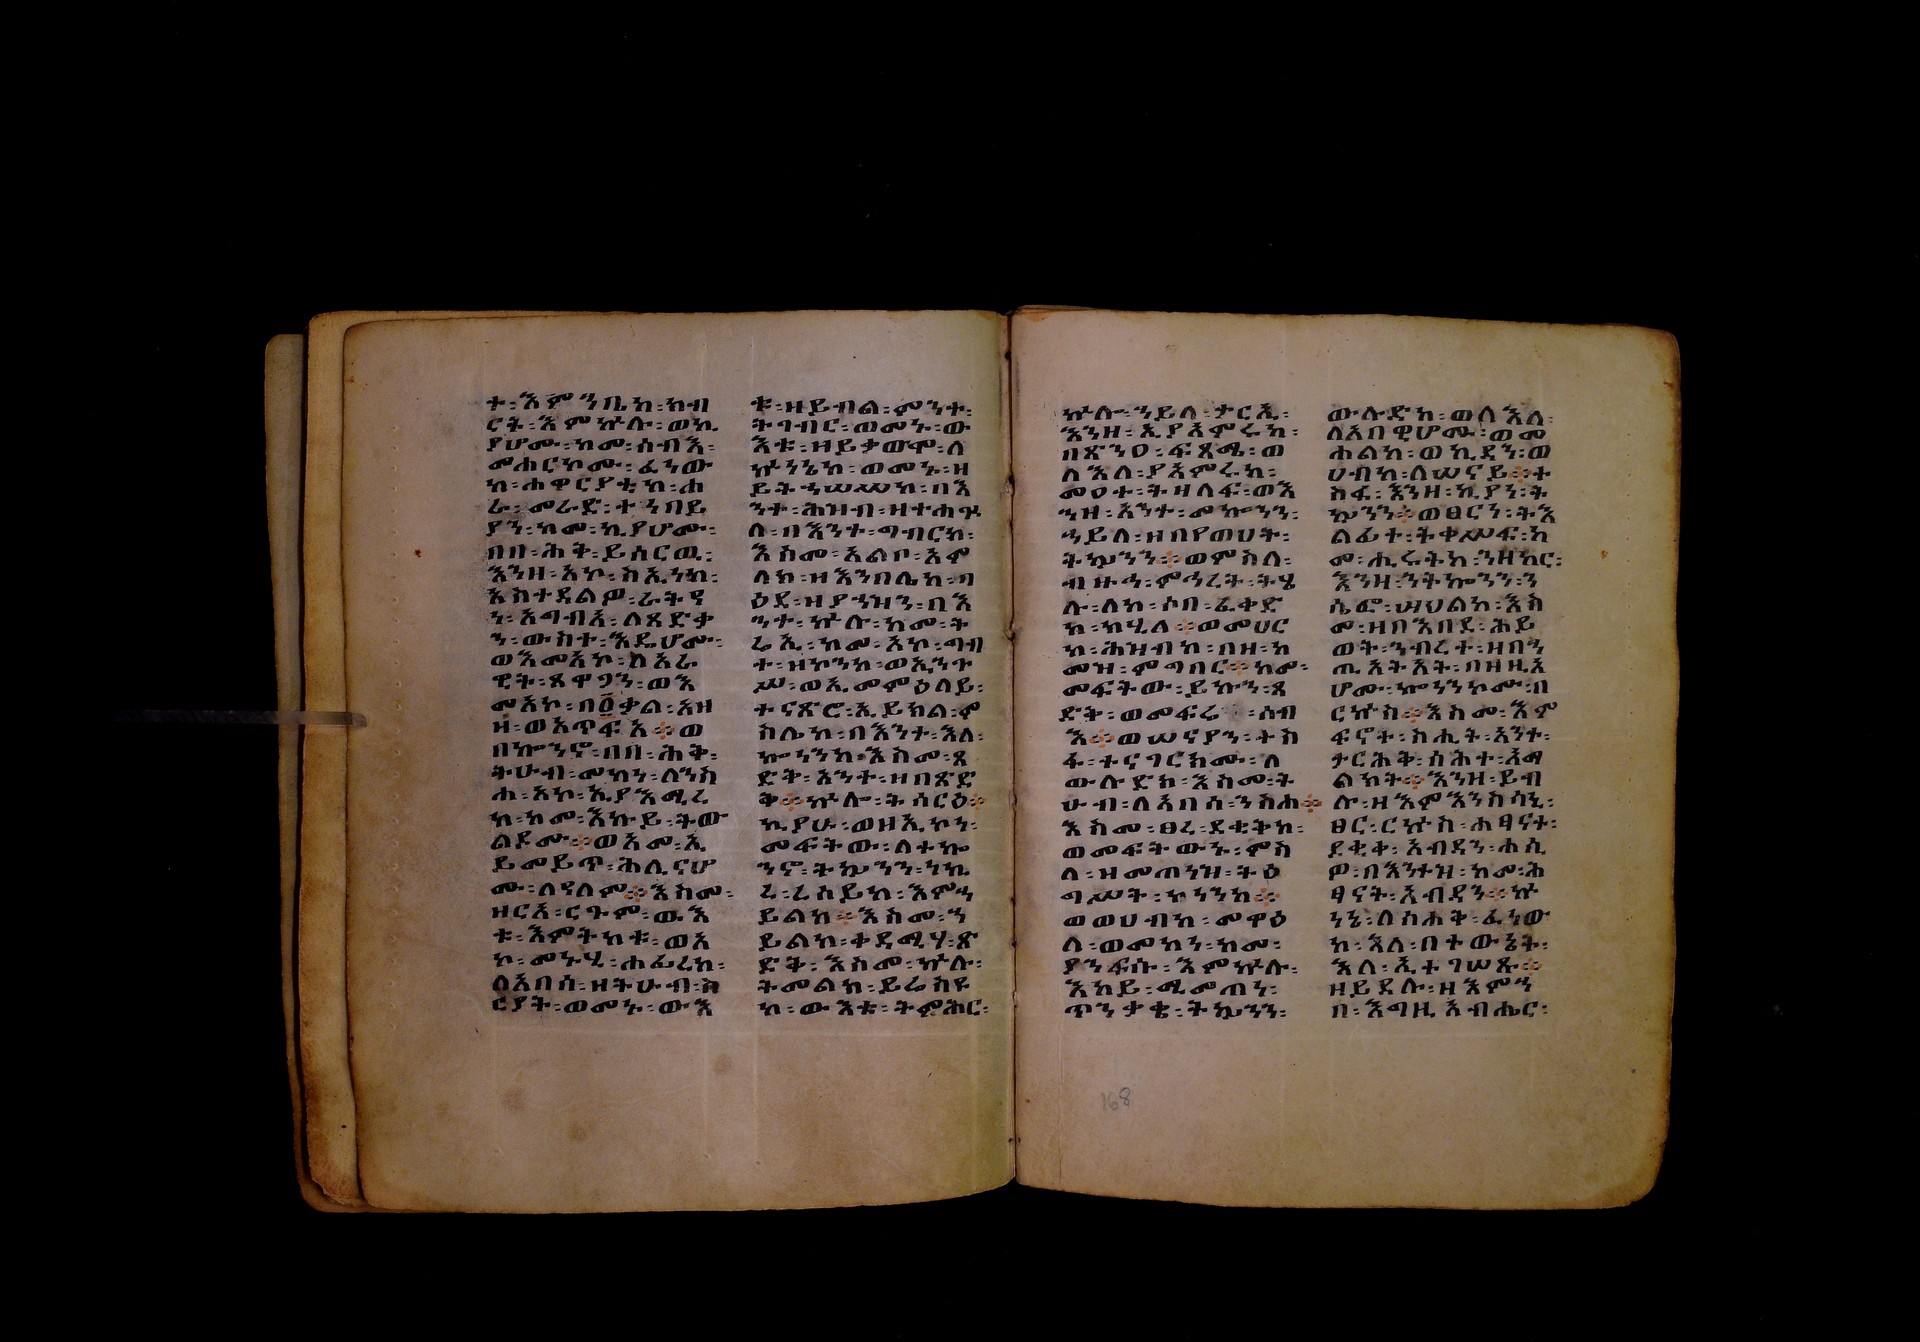 ተ፡እምንቢከ፡ከብ
ርት፡እምኵሉ፡ወኪ
ያሆሙ፡ከመ፡ሰብእ፡
መሐርኮሙ፡ፈነው
ከ፡ሐዋርያቲከ፡ሐ
ራ፡መራድ፡ተኀበይ
ያነ፡ከመ፡ኪያሆሙ፡
በበ፡ሕቅ፡ይሰርዉ፡
እንዘ፡አኮ፡ስኢነከ፡
አስተዳልዎ፡ራትዓ
ነ፡አግብአ፡ለጻድቃ
ን፡ውስተ፡እዴሆሙ፡
ወእመአኮ፡ለአራ
ዊት፡ጸዋጋን፡ወእ
መአኮ፡በ፩ቃል፡እዘ
ዘ፡ወአጥፍአ፡ወ
በኰንኖ፡በበ፡ሕቅ፡
ትሁብ፡መካነ፡ለንስ
ሐ፡አኮ፡ኢያእሚረ
ከ፡ከመ፡እኩይ፡ትው
ልዶሙ፡ወእመ፡ኢ
ይመይጥ፡ሕሊናሆ
ሙ፡ለዓለም፡እስመ፡
ዘርእ፡ርጉም፡ዉእ
ቱ፡እምትካቱ፡ወአ
ኮ፡መኑሂ፡ሐፊረከ፡
ለአበሳ፡ዘትሁብ፡ስ
ርየት፡ወመኑ፡ውእ
ቱ፡ዘይብል፡ምንተ፡
ትገብር፡ወመኑ፡ው
እቱ፡ዘይቃወሞ፡ለ
ኵነኔከ፡ወመኑ፡ዘ
ይትኃሠሠከ፡በእ
ንተ፡ሕዝብ፡ዘተሐጕ
ለ፡በእንተ፡ግብርከ፡
እስመ፡አልቦ፡አም
ላከ፡ዘእንበሌከ፡ባ
ዕደ፡ዘያኀዝን፡በእ
ንተ፡ኵሉ፡ከመ፡ት
ሬኢ፡ከመ፡አኮ፡ግብ
ተ፡ዘኮነንከ፡ወኢንጉ
ሥ፡ወኢመምዕላይ፡
ተናጽሮ፡ኢይክል፡ም
ስሌከ፡በእንተ፡እለ፡
ኰነንከ፡እስመ፡ጻ
ድቅ፡አንተ፡ዘበጽድ
ቅ፡ኵሎ፡ትሰርዕ፡
ኪያሁ፡ወዘኢኮነ፡
መፍትው፡ለተኰ
ንኖ፡ትኴንን፡ነኪ
ረ፡ረስይከ፡እምኃ
ይልከ፡እስመ፡ኀ
ይልከ፡ቀዳሚሃ፡ጽ
ድቅ፡እስመ፡ኵሉ፡
ትመልክ፡ይሬስዩ
ከ፡ውእቱ፡ትምሕር፡
ኵሎ፡ኀይለ፡ታርኢ፡
እንዘ፡ኢያአምሩከ፡
በጽንዐ፡ፍጻሜ፡ወ
ለእለ፡ያአምሩከ፡
መዐተ፡ትዛለፍ፡ወእ
ንዘ፡አንተ፡መኰንን፡
ኀይለ፡ዘበየወሀት፡
ትኴንን፡ወምስለ፡
ብዙኅ፡ምሕረት፡ትሄ
ሉ፡ለከ፡ሶበ፡ፈቀድ
ከ፡ክሂለ፡ወመሀር
ከ፡ሕዝብከ፡በዘ፡ከ
መዝ፡ምግባር፡ከመ፡
መፍትው፡ይኩን፡ጻ
ድቅ፡ወመፍሬ፡ሰብ
እ፡ወሠናያነ፡ተስ
ፋ፡ተናገርከሙ፡ለ
ውሉድከ፡እስመ፡ት
ሁብ፡ለአበሳ፡ንስሐ፡
እስመ፡ፀረ፡ደቂቅከ፡
ወመፍትውኑ፡ምስ
ለ፡ዘመጠነዝ፡ትዕ
ግሥት፡ኮነንከ፡
ወወሀብከ፡መዋዕ
ለ፡ወመካነ፡ከመ፡
ያንፍሱ፡እምኵሉ፡
እከይ፡ሚመጠነ፡
ጥንቃቄ፡ትኴንን፡
ውሉድከ፡ወለእለ፡
ለአበዊሆሙ፡ወመ
ሐልከ፡ወኪዳነ፡ወ
ሀብከ፡ለሠናይ፡ተ
ስፋ፡እንዘ፡ኪያነ፡ት
ኴንን፡ወፀርነ፡ትእ
ልፊተ፡ትቀሥፍ፡ከ
መ፡ሒሩትከ፡ንዘከር፡
እንዘ፡ንትኰነን፡ን
ሴፎ፡ሣህልከ፡እስ
መ፡ዘበእበደ፡ሕይ
ወት፡ነብረተ፡ዘበኀ
ጢአትአት፡በዘዚአ
ሆሙ፡ኰነንኮሙ፡በ
ርኵስ፡እስመ፡እም
ፍኖት፡ስሒት፡አንተ፡
ታርሕቅ፡ስሕተ፡አማ
ልክት፡እንዘ፡ይብ
ሉ፡ዘእምእንስሳኒ፡
ፀር፡ርኵስ፡ሐፃናተ፡
ደቂቀ፡አብዳን፡ሐሲ
ዎ፡በእንተዝ፡ከመ፡ሕ
ፃናት፡አብዳን፡ኵ
ነኔ፡ለስሕቅ፡ፈነው
ከ፡እለ፡በተውኔት፡
እለ፡ኢተገሠጹ፡
ዘይደሉ፡ዘእምኀ
በ፡እግዚአብሔር፡
168